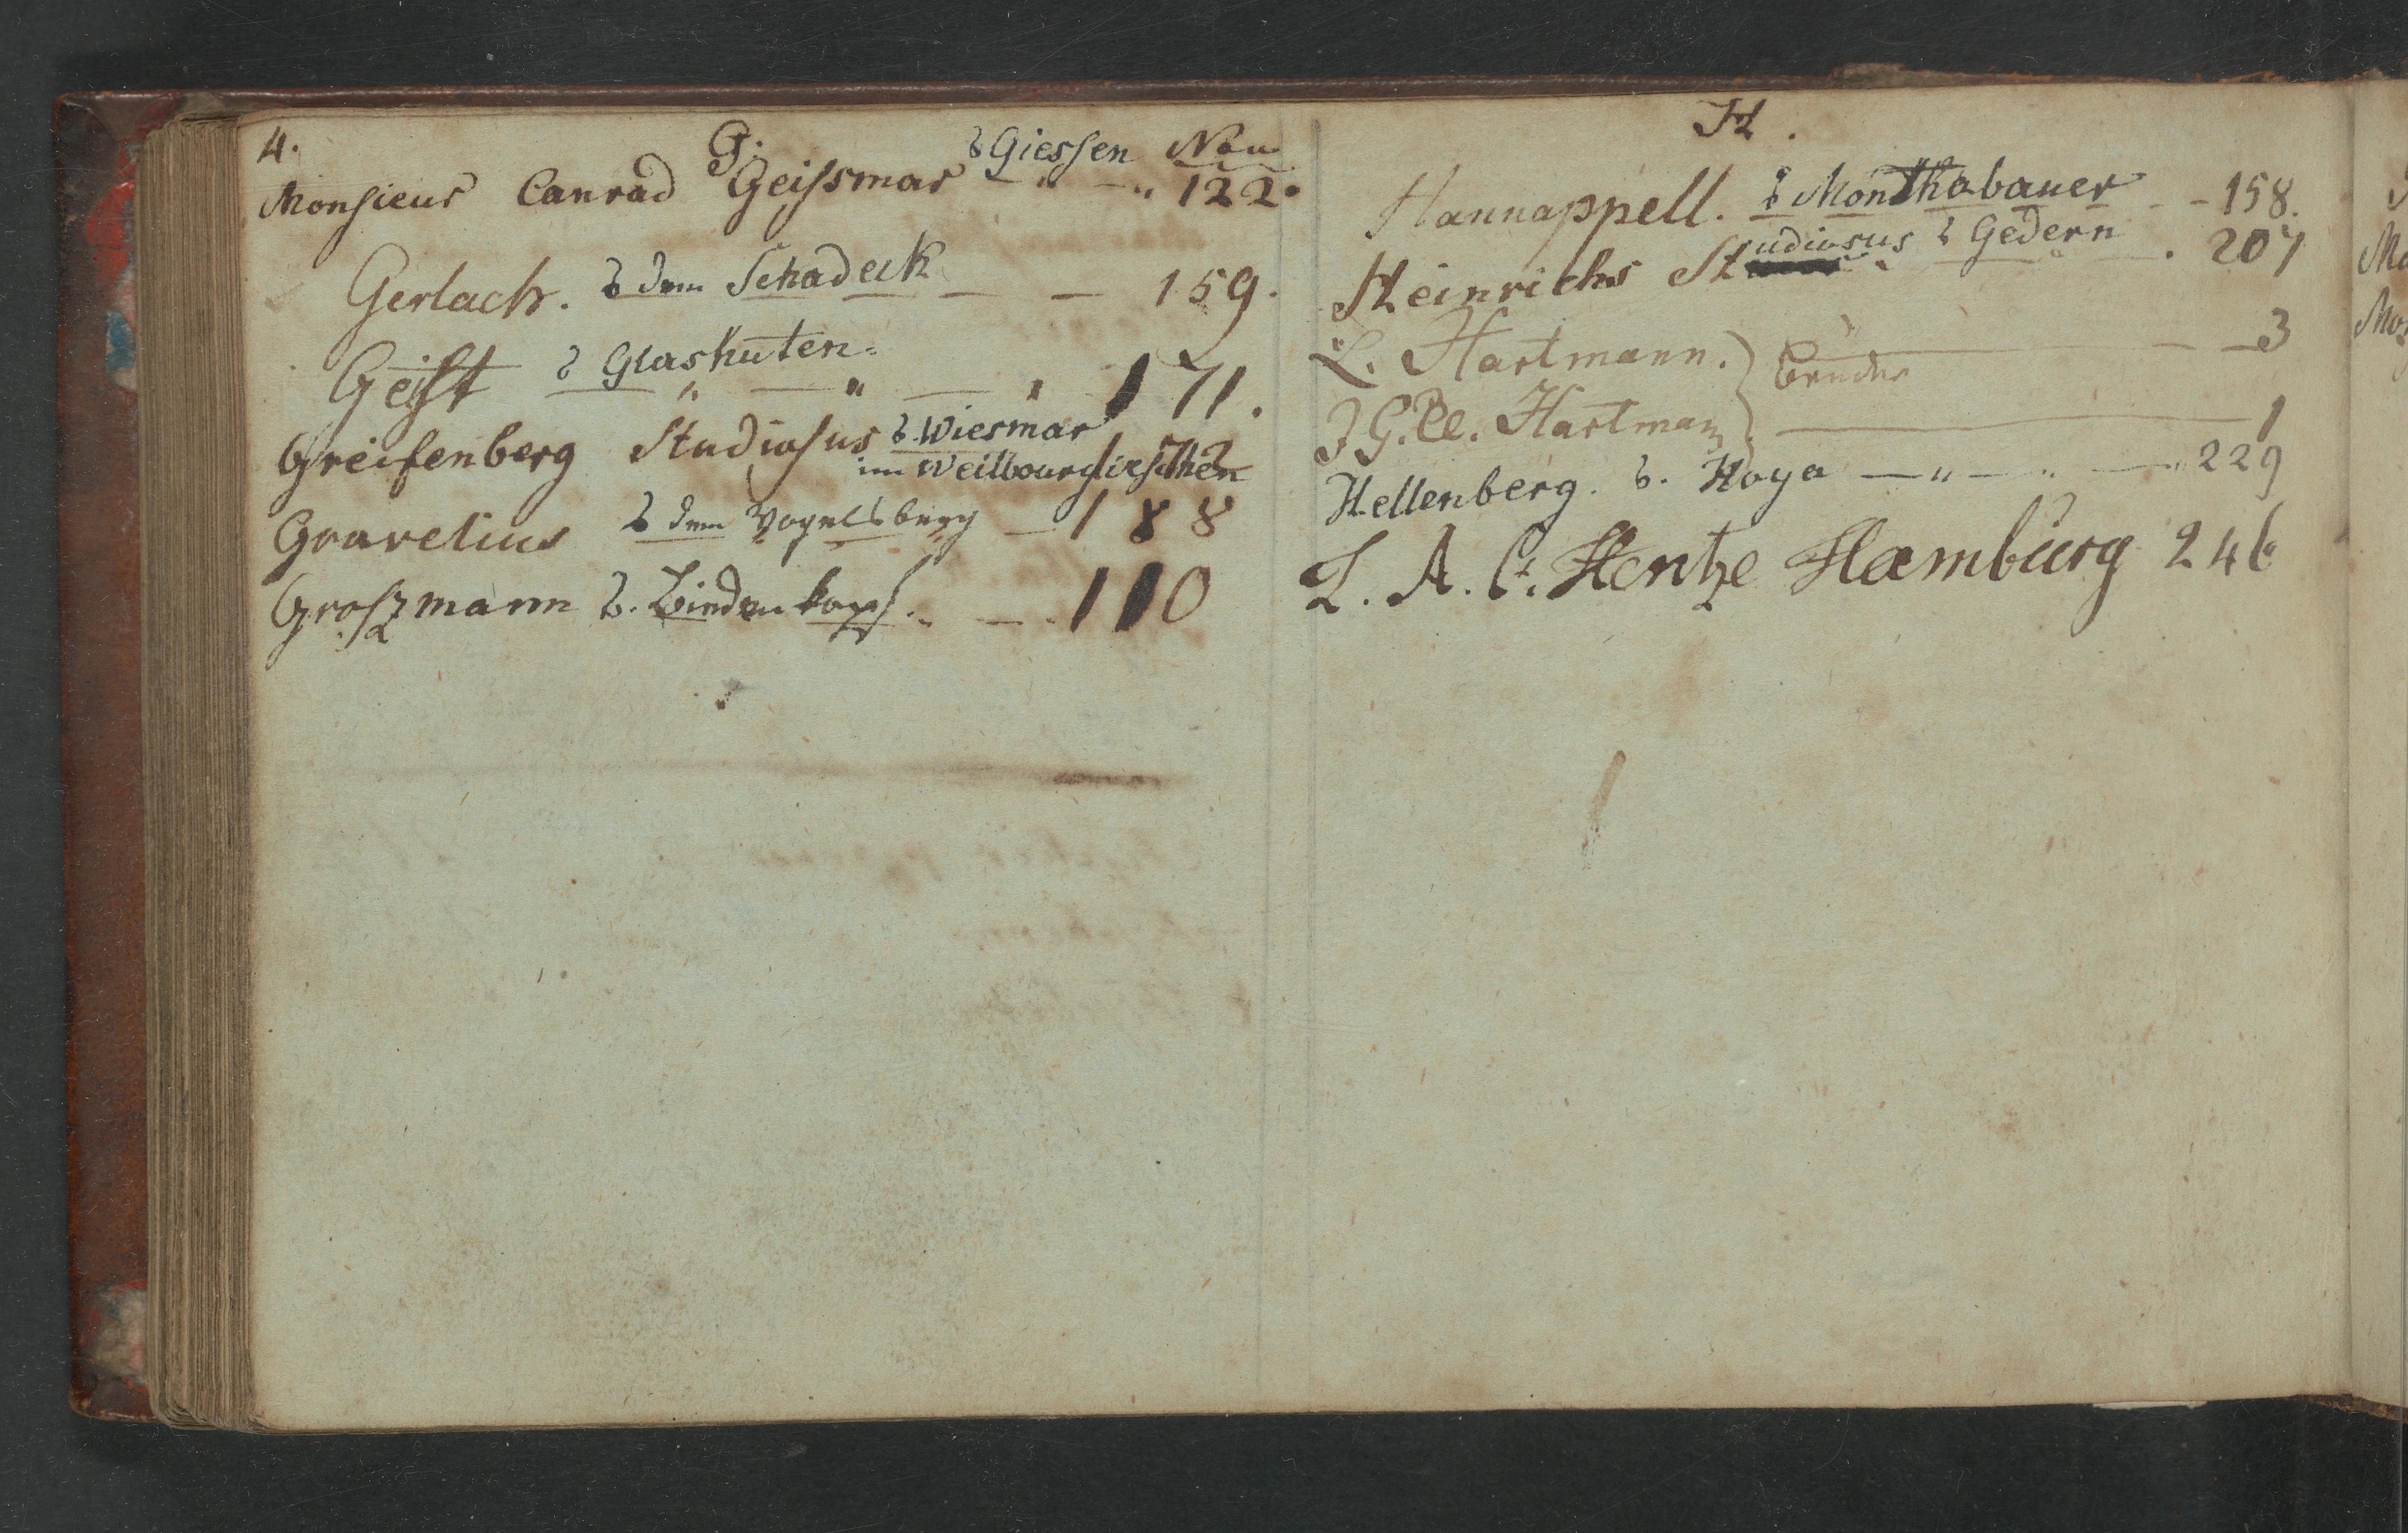 4.
G.
Monsieur Conrad Geissmar v Giessen Nou 122.
Gerlach. v dem Schadeck 159.
Geist v Glashüten 171.
Greifenberg Studiosus v. Wiesmar
im Weilbourgischen
Gravelius v dem Vogelsberg 188
Groszmann v. Biedenkopf. 110
H.
Hannappell. v Monthabauer 158.
Heinrichs Studiosus v Gedern 207
L. Hartmann. } Brüder 3
J. G. Cl. Hartman 1
Hellenberg. v. Hoya 229
L. A. C. Hentze Hamburg 246